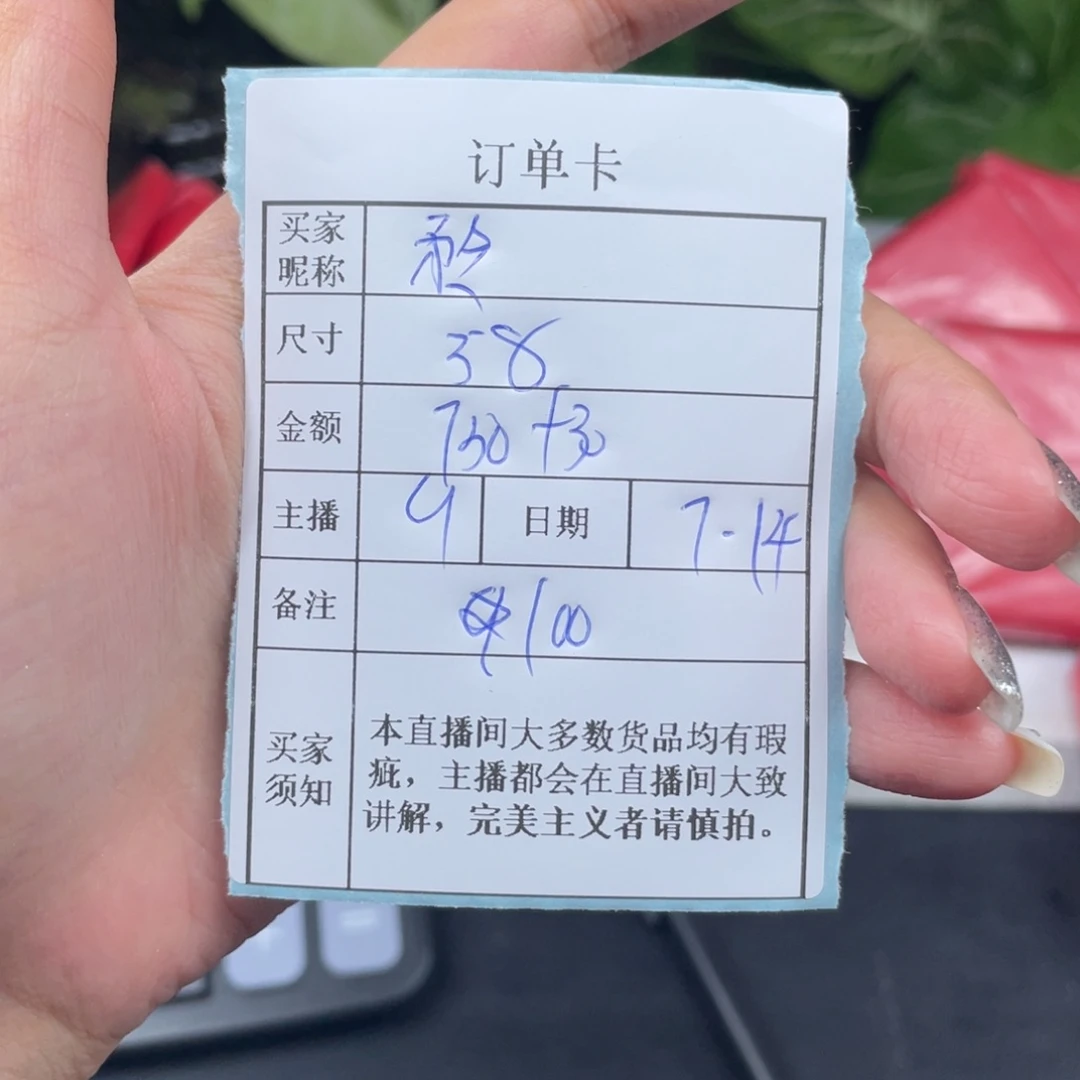 订单卡
买家
昵称
尺寸 58
金额 730+30
主播 9 日期 7-14
备注 100
买家
须知
本直播间大多数货品均有瑕
疵，主播都会在直播间大致
讲解，完美主义者请慎拍。